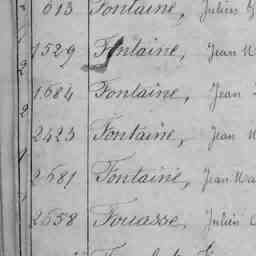 613 Fontaine, Julien
1529 Fontaine, Jean M
1684 Fontaine, Jean
2423 Fontaine, Jean M
2581 Fontaine, Jean Ma
2658 Fouasse, Julien